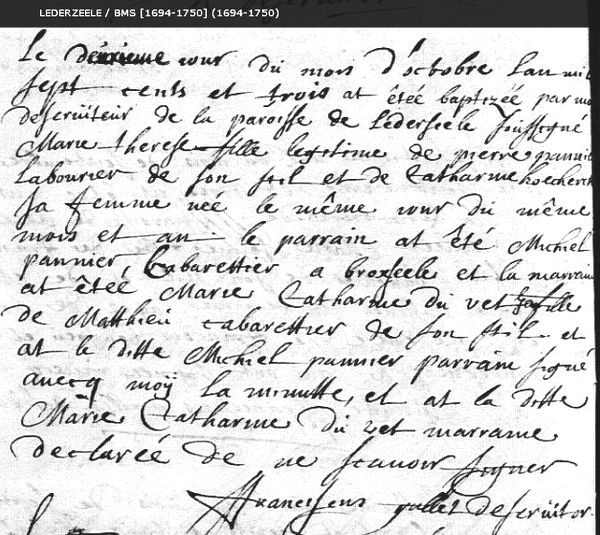 LEDERZEELE / BMS [1694-1750] (1694-1750)
Le deuxieme iour du mois d'octobre l'an mil
sept cents et trois at étéé baptizéé par moy
deservüteur de la paroisse de Lederseele soussigné
Marie therese fille legitime de pierre pannier
labourier de son stil et de Catharine
sa femme néé le même iour du même
mois et an le parrain at été Michiel
pannier, Cabarettier a broxeele et la marraine
at étéé Marie Catharine du vet fille
de Matthieu cabarettier de son stil et
at le ditte Michiel pannier parrain signé
avecq moÿ la minutte, et at la ditte
Marie Catharine du vet marraine
declaréé de ne scavoir signer
Franciscus deservitor